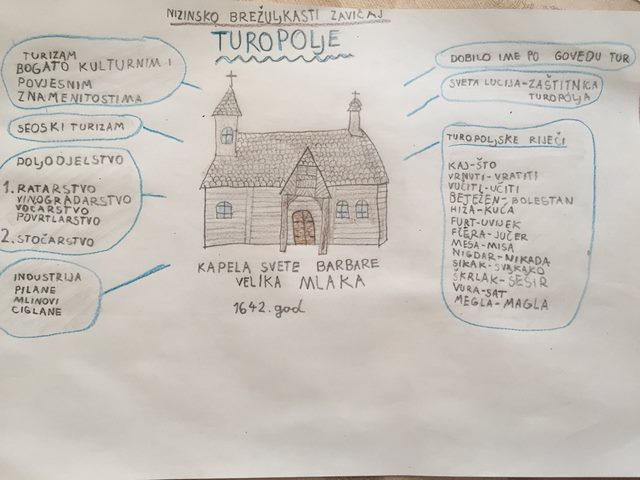 NIZINSKO BREŽULJKASTI ZAVIČAJ
TUROPOLJE
TURIZAM
BOGATO KULTURNIM I
POVJESNIM
ZNAMENITOSTIMA
SEOSKI TURIZAM
POLJODJELSTVO
1. RATARSTVO
VINOGRADARSTVO
VOĆARSTVO
POVRTLARSTVO
2. STOČARSTVO
INDUSTRIJA
PILANE
MLINOVI
CIGLANE
KAPELA SVETE BARBARE
VELIKA MLAKA
1642. god
DOBILO IME PO GOVEDU TUR
SVETA LUCIJA-ZAŠTITNICA
TUROPOLJA
TUROPOLJSKE RIJEČI
KAJ-ŠTO
VRNUTI-VRATITI
VUČITI-UČITI
BETEŽEN-BOLESTAN
HIŽA-KUĆA
FURT-UVIJEK
FČERA-JUČER
MEŠA-MISA
NIGDAR-NIKADA
SIKAK-SVAKAKO
ŠKRLAK-ŠEŠIR
VURA-SAT
MEGLA-MAGLA